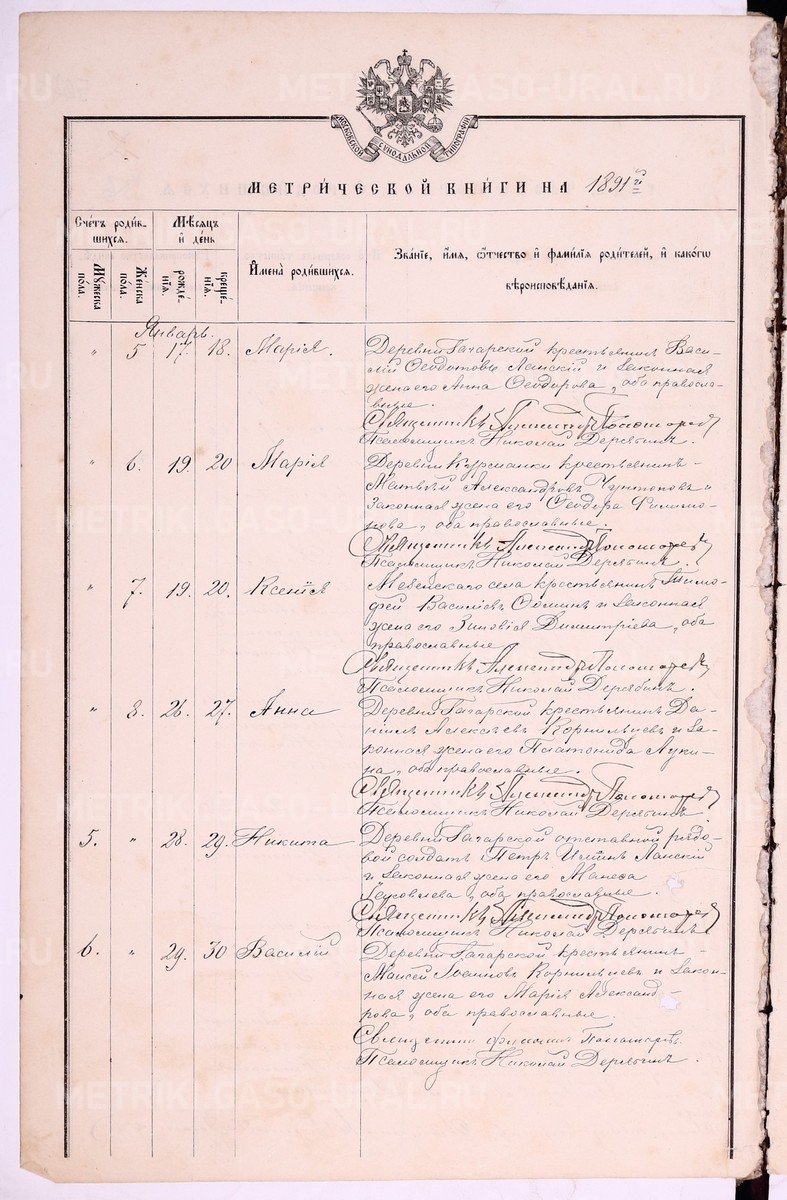 МОСКОВСКОЙ СѴНОДАЛЬНОЙ ТИПОГРАФІИ
МЕТРИ́ЧЕСКОЙ КНИ́ГИ НА 1891 й
Сче́тъ роди́в-
шихся.
Мѣ́сяцъ
и҆ де́нь
Му́жеска
по́ла.
Же́нска
по́ла.
рожде́-
нїя.
креще́-
нїя.
И҆мена̀ роди́вшихся.
Зва́нїе, и҆́мѧ, ѻ҆́тчество и҆ фами́лїя роди́телей, и҆ како́гѡ
вѣроисповѣ́данїя.
Январь.
" 5 17. 18. Марія.
Деревни Гагарской крестьянинъ Васи-
лій Ѳеодотовъ Ланскій и законная
жена его Анна Ѳеодорова, оба правосла-
вные.
Священникъ Александръ Пономаревъ
Псаломщикъ Николай Дерябинъ.
" 6. 19. 20 Марія
Деревни Курманки крестьянинъ
Матвѣй Александровъ и
законная жена его Ѳеодора Филимо-
нова, оба православные.
Священникъ Александръ Пономаревъ
Псаломщикъ Николай Дерябинъ.
" 7. 19. 20. Ксенія
села крестьянинъ Тимо-
фей Василіевъ и законная
жена его Зиновія Димитріева, оба
православные
Священникъ Александръ Пономаревъ
Псаломщикъ Николай Дерябинъ.
" 8. 26. 27. Анна
Деревни Гагарской крестьянинъ Да-
ніилъ Алексѣевъ Корнильцевъ и за-
конная жена его Платонида Луки-
на, оба православные.
Священникъ Александръ Пономаревъ
Псаломщикъ Николай Дерябинъ.
5. " 28. 29. Никита
Деревни Гагарской отставной рядо-
вой солдатъ Петръ Ланскій
и законная жена его
Яковлева, оба православные.
Священникъ Александръ Пономаревъ
Псаломщикъ Николай Дерябинъ
6. " 29. 30 Василій
Деревни Гагарской крестьянинъ
Моисей Корнильцевъ и закон-
ная жена его Марія Александ-
рова, оба православные.
Пономаревъ.
Псаломщикъ Николай Дерябинъ.
METRIKI.GASO-URAL.RU